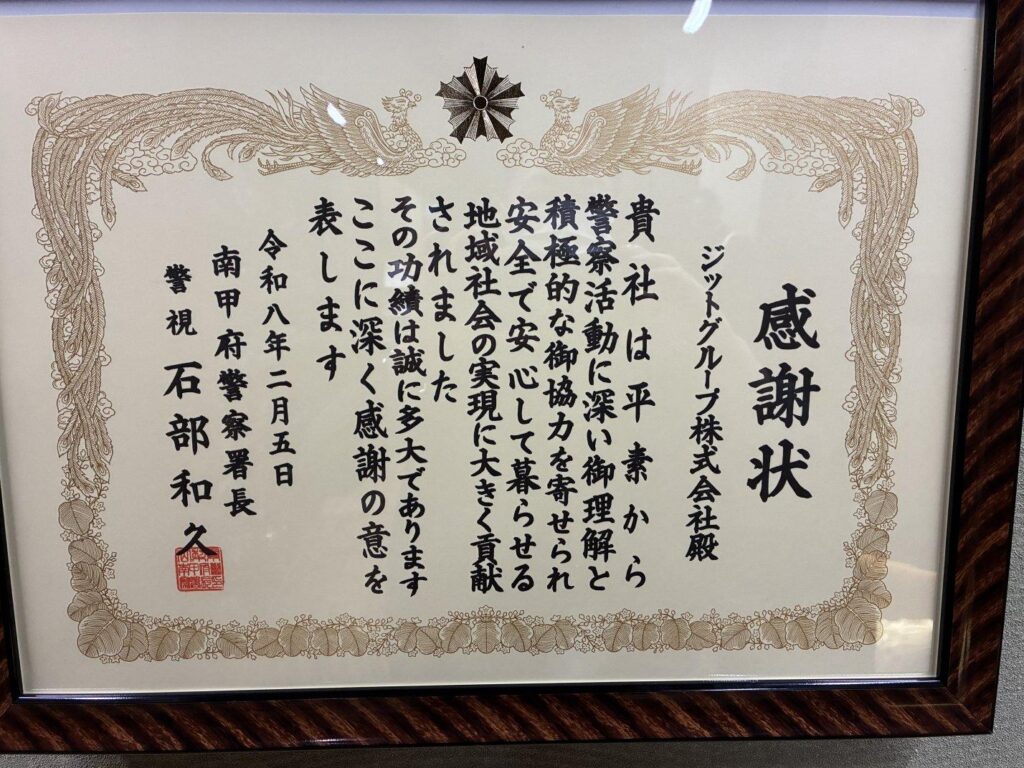 感謝状
ジットグループ株式会社殿
貴社は平素から
警察活動に深い御理解と
積極的な御協力を寄せられ
安全で安心して暮らせる
地域社会の実現に大きく貢献
されました
その功績は誠に多大であります
ここに深く感謝の意を
表します
令和八年二月五日
南甲府警察署長
警視 石部和久